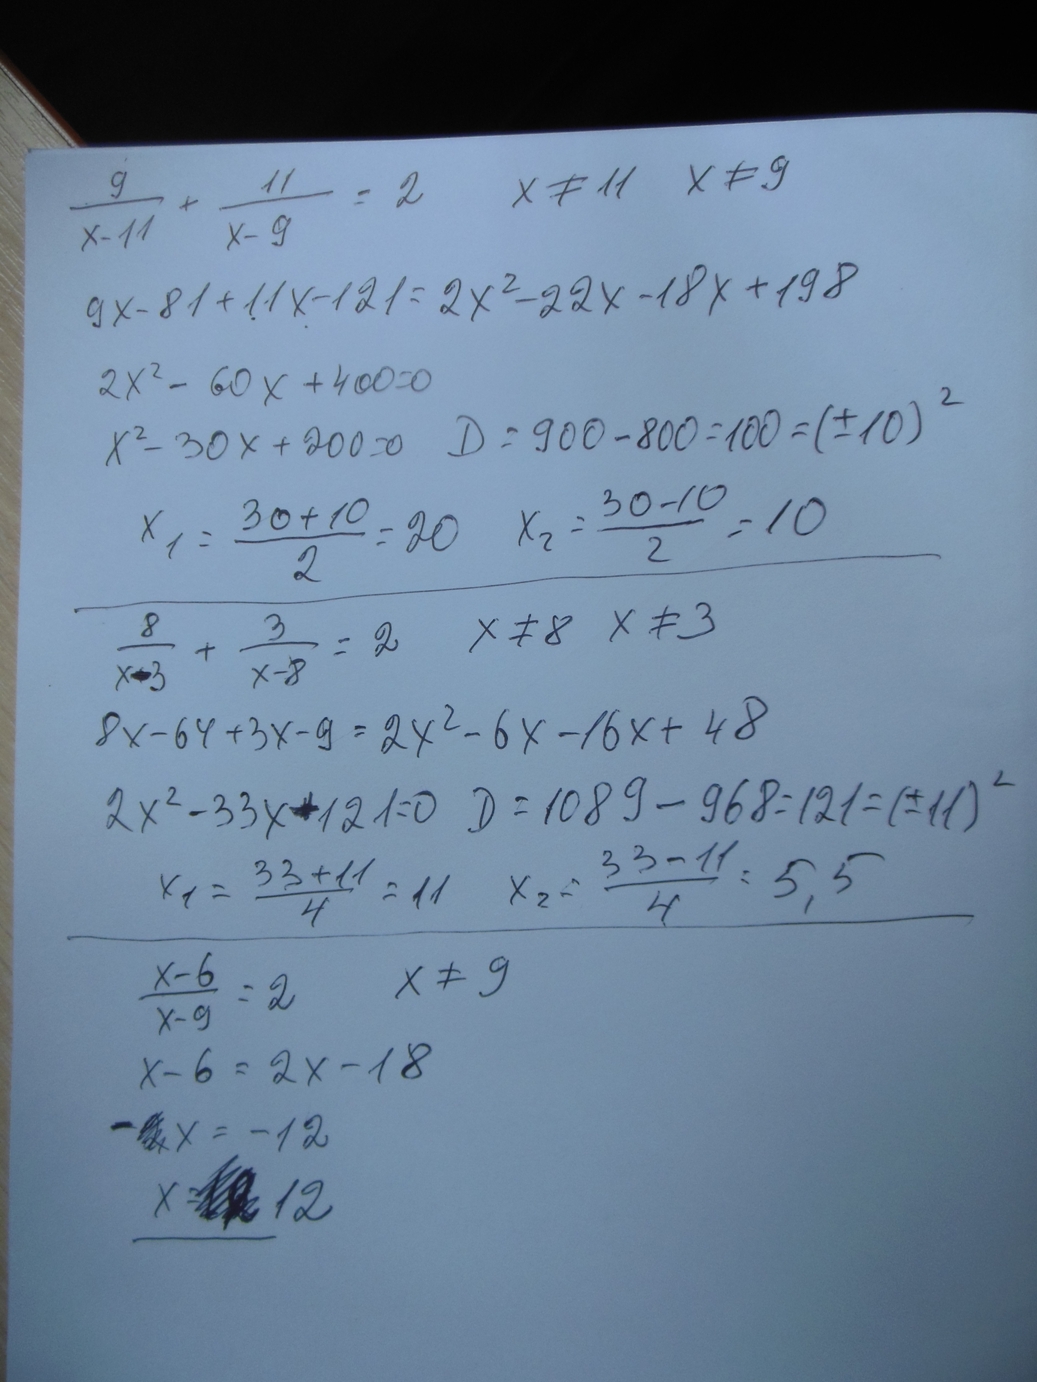 9/(x-11) + 11/(x-9) = 2 x ≠ 11 x ≠ 9
9x-81+11x-121=2x²-22x-18x+198
2x²- 60x+400=0
x²-30x+200=0 D=900-800=100=(±10)²
x₁ = (30+10)/2 = 20 x₂ = (30-10)/2 = 10
8/(x-3) + 3/(x-8) = 2 x ≠ 8 x ≠ 3
8x-64+3x-9=2x²-6x-16x+48
2x²-33x+121=0 D=1089-968=121=(±11)²
x₁ = (33+11)/4 = 11 x₂ = (33-11)/4 = 5,5
(x-6)/(x-9) = 2 x ≠ 9
x-6 = 2x-18
-x = -12
x = 12